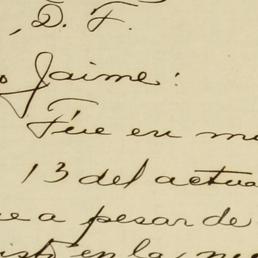 , D. F.
o Jaime:
Fué en m
13 del actua
e a pesar de
en la